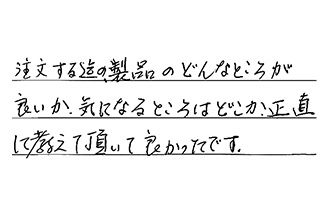 注文する迄の、製品のどんなところが
良いか、気になるところはどこか、正直
に教えて頂いて良かったです。